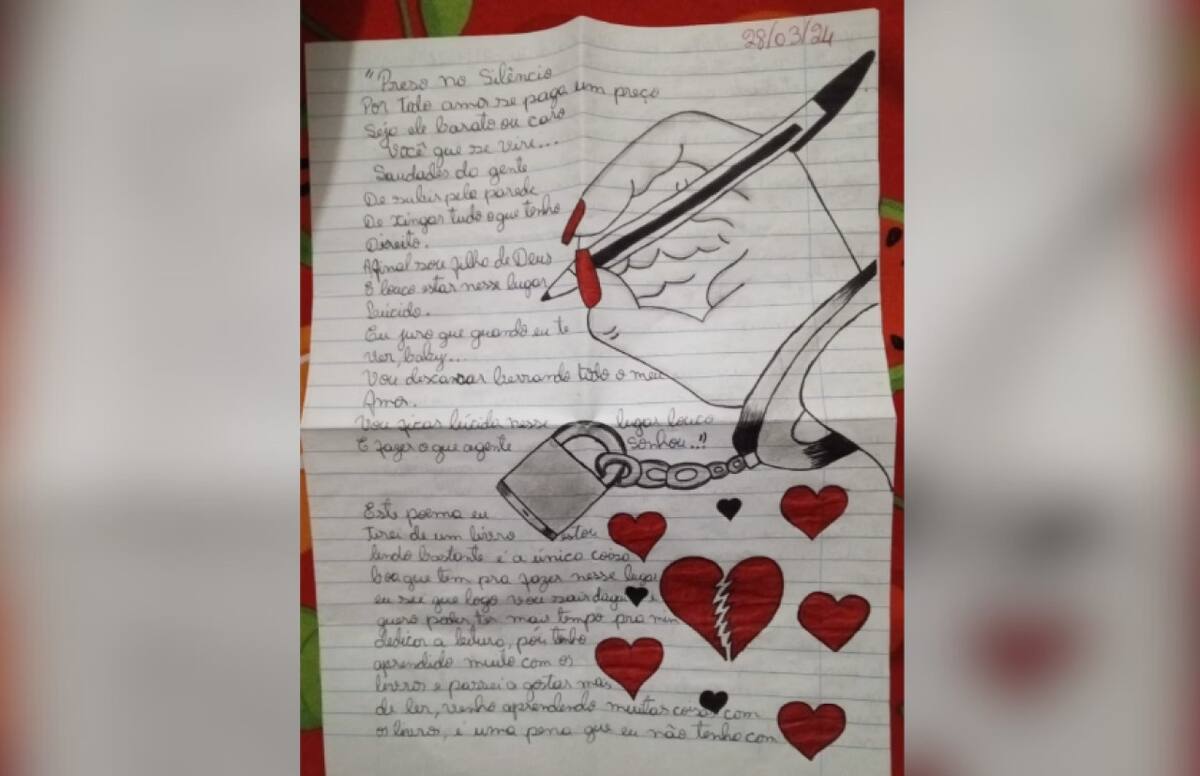 28/03/24
"Preso no Silêncio
Por todo amor se paga um preço
Seja ele barato ou caro
Você que se vire...
Saudades da gente
De subir pela parede
De xingar tudo o que tenho
Direito.
Afinal sou filho de Deus
E louco estar nesse lugar
Lúcido.
Eu juro que quando eu te
Ver, baby...
Vou descansar berrando todo o meu
Amor.
Vou ficar lúcida nesse lugar louco
E fazer o que agente sonhou..."
Este poema eu
tirei de um livro estou
lendo bastante é a única coisa
boa que tem pra fazer nesse lugar
eu sei que logo vou sair daqui e
quero poder ter mais tempo pra mim
dedicar a leitura, pois tenho
aprendido muito com os
livros e passei a gostar mas
de ler, venho aprendendo muitas coisas com
os livros, é uma pena que eu não tenho com